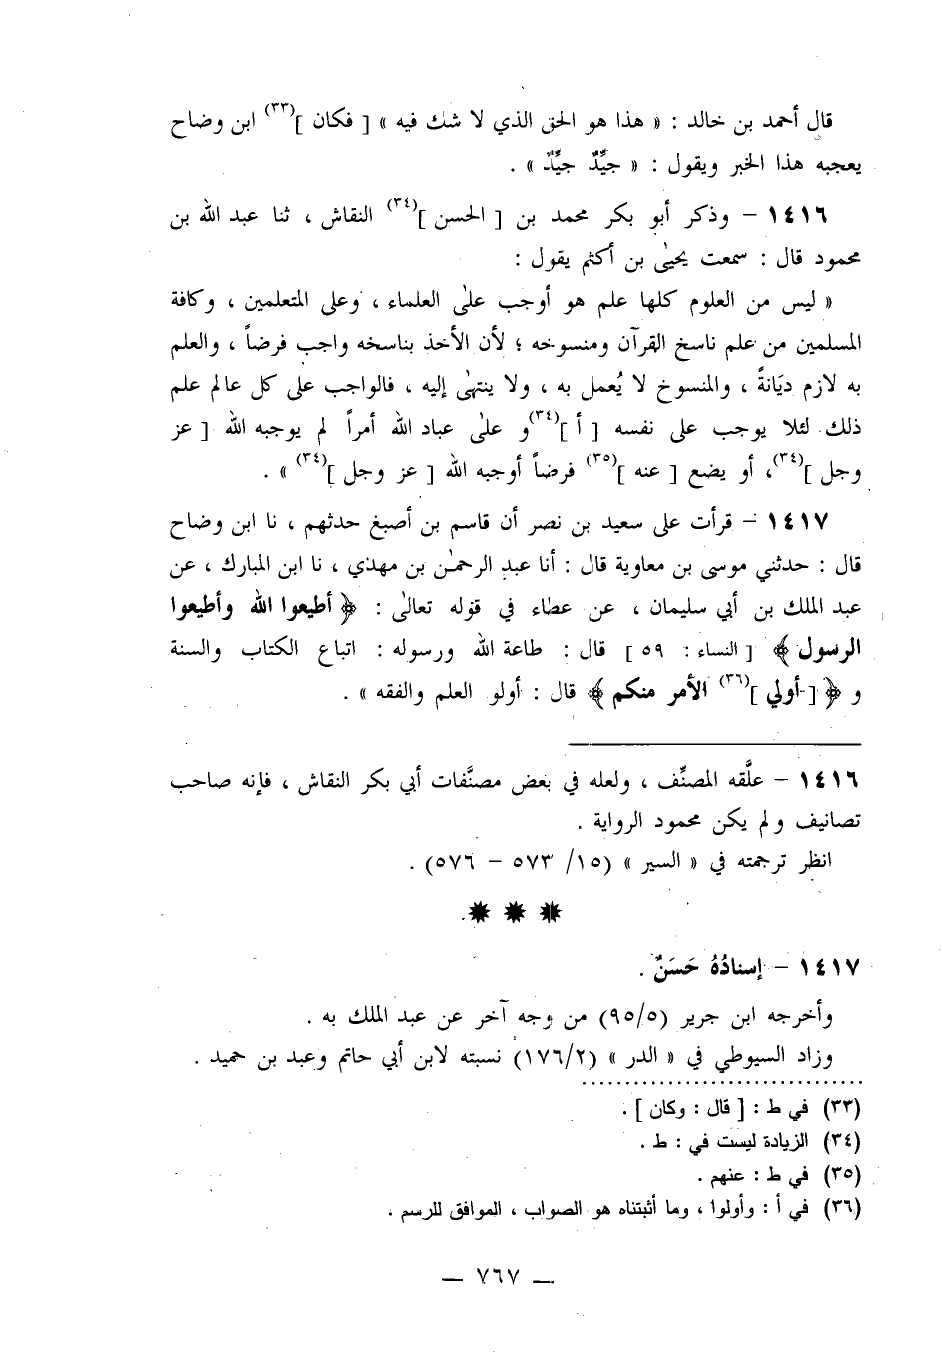 قال أحمد بن خالد : « هذا هو الحق الذي لا شك فيه » [ فكان ](٣٣) ابن وضاح
يعجبه هذا الخبر ويقول : « جيِّدٌ جيِّدٌ » .
١٤١٦ – وذكر أبو بكر محمد بن [ الحسن ](٣٤) النقاش ، ثنا عبد الله بن
محمود قال : سمعت يحيىٰ بن أكثم يقول :
« ليس من العلوم كلها علم هو أوجب علىٰ العلماء ، وعلى المتعلمين ، وكافة
المسلمين من علم ناسخ القرآن ومنسوخه ؛ لأن الأخذ بناسخه واجب فرضاً ، والعلم
به لازم ديَانةً ، والمنسوخ لا يُعمل به ، ولا ينتهىٰ إليه ، فالواجب على كل عالم علم
ذلك لئلا يوجب على نفسه [ أ ](٣٤)و علىٰ عباد الله أمراً لم يوجبه الله [ عز
وجل ](٣٤)، أو يضع [ عنه ](٣٥) فرضاً أوجبه الله [ عز وجل ](٣٤) » .
١٤١٧ – قرأت على سعيد بن نصر أن قاسم بن أصبغ حدثهم ، نا ابن وضاح
قال : حدثني موسى بن معاوية قال : أنا عبد الرحمٰن بن مهدي ، نا ابن المبارك ، عن
عبد الملك بن أبي سليمان ، عن عطاء في قوله تعالىٰ : ﴿ أطيعوا الله وأطيعوا
الرسول ﴾ [ النساء : ٥٩ ] قال : طاعة الله ورسوله : اتباع الكتاب والسنة
و ﴿ [ أولي ](٣٦) الأمر منكم ﴾ قال : أولو العلم والفقه » .
١٤١٦ – علَّقه المصنِّف ، ولعله في بعض مصنَّفات أبي بكر النقاش ، فإنه صاحب
تصانيف ولم يكن محمود الرواية .
انظر ترجمته في « السير » (١٥/ ٥٧٣ – ٥٧٦) .
١٤١٧ – إسنادُهُ حَسَنٌ .
وأخرجه ابن جرير (٩٥/٥) من وجه آخر عن عبد الملك به .
وزاد السيوطي في « الدر » (١٧٦/٢) نسبته لابن أبي حاتم وعبد بن حميد .
(٣٣) في ط : [ قال : وكان ] .
(٣٤) الزيادة ليست في : ط .
(٣٥) في ط : عنهم .
(٣٦) في أ : وأولوا ، وما أثبتناه هو الصواب ، الموافق للرسم .
— ٧٦٧ —